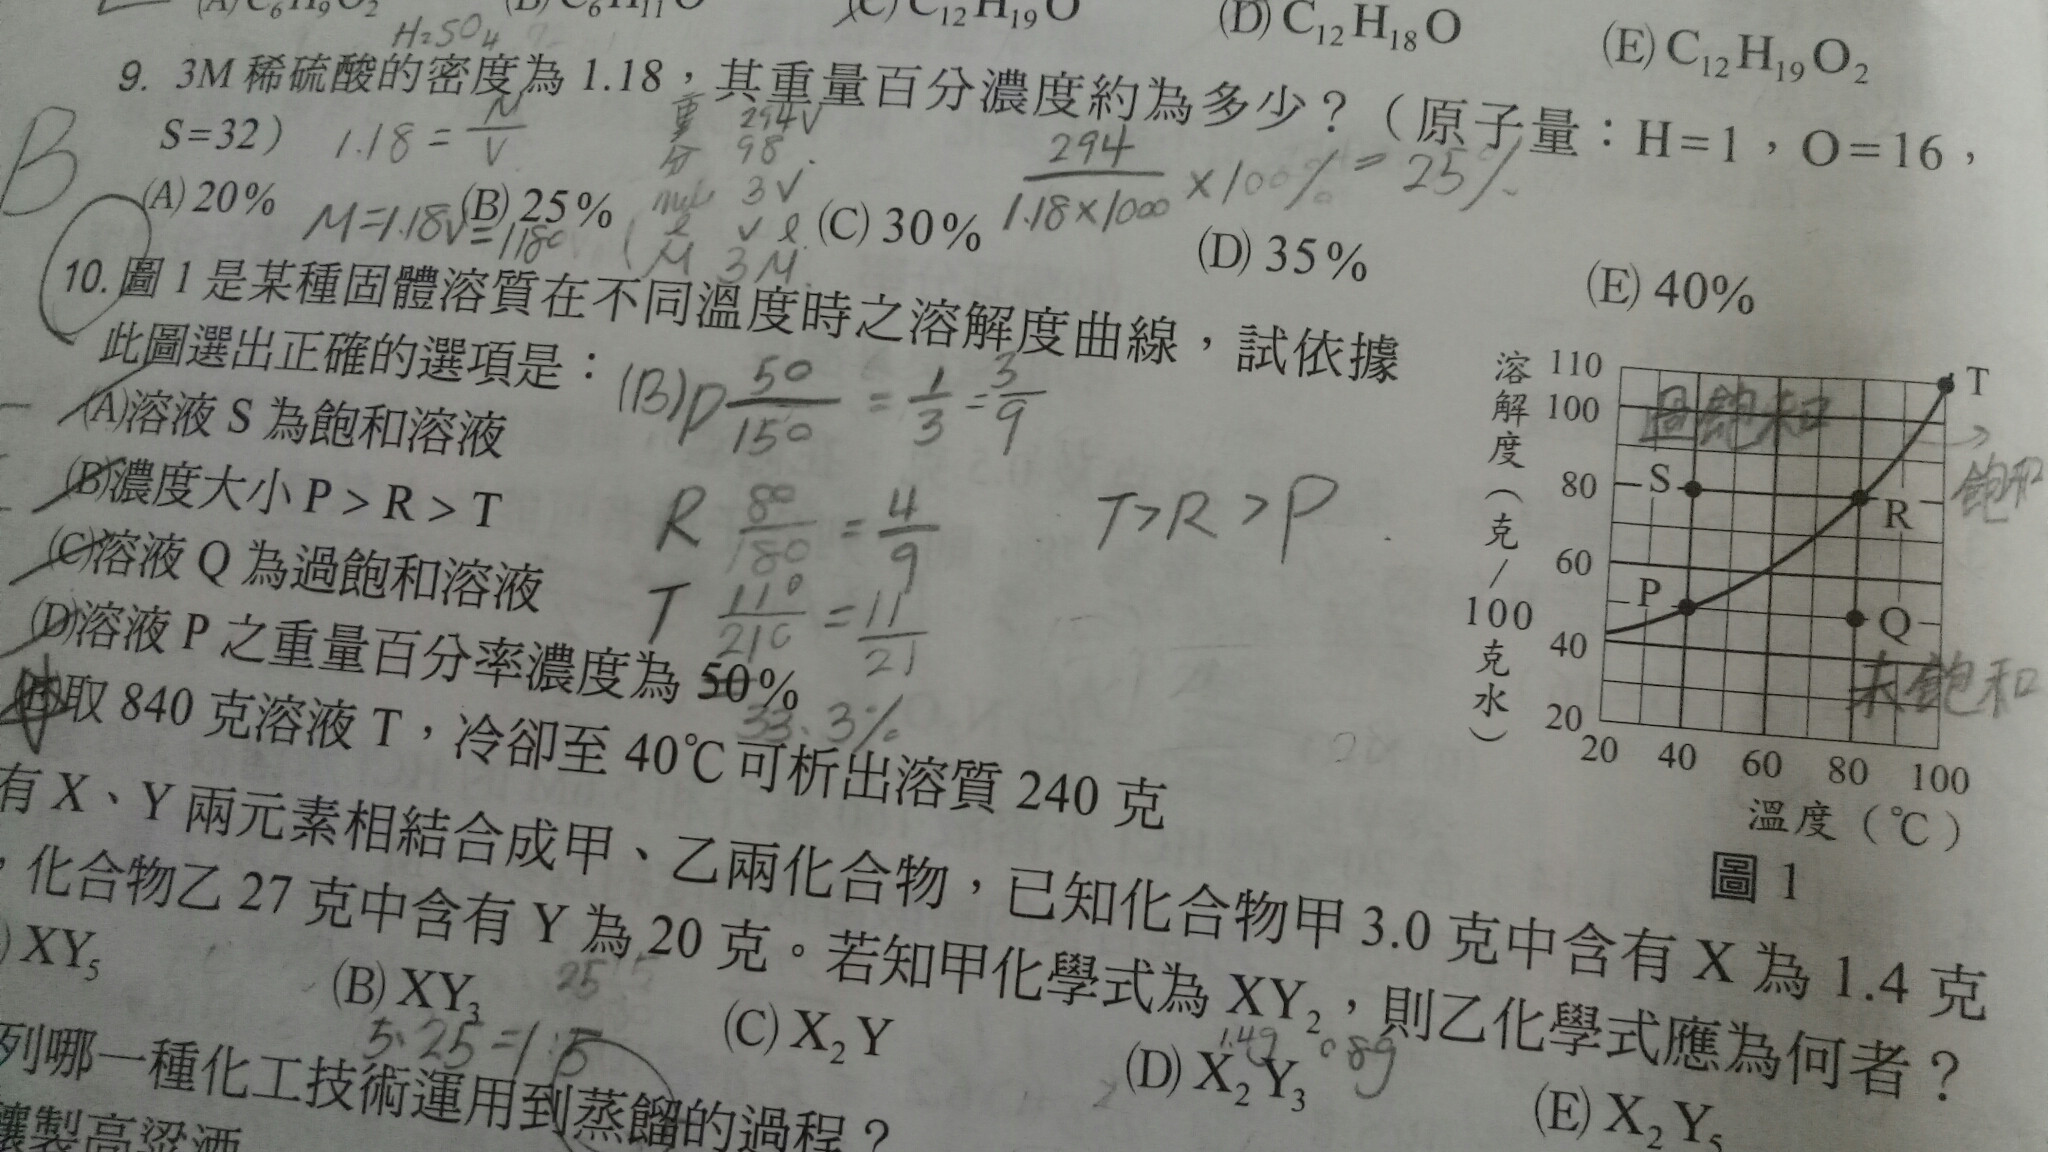 (A) C₆H₉O₂ (B) C₆H₁₁O (C) C₁₂H₁₉O (D) C₁₂H₁₈O (E) C₁₂H₁₉O₂
H₂SO₄
9. 3M 稀硫酸的密度為 1.18，其重量百分濃度約為多少？（原子量：H=1，O=16，
S=32）
B
1.18 =
V
重 294V
分 98
mole 3V
l V l
M 3M
294
1.18×1000
×100% = 25%
(A) 20% (B) 25% (C) 30% (D) 35% (E) 40%
M=1.18V=1180V
10. 圖 1 是某種固體溶質在不同溫度時之溶解度曲線，試依據
此圖選出正確的選項是：
(A)溶液 S 為飽和溶液
(B)濃度大小 P > R > T
(C)溶液 Q 為過飽和溶液
(D)溶液 P 之重量百分率濃度為 50%
33.3%
取 840 克溶液 T，冷卻至 40℃可析出溶質 240 克
(B)P 50/150 = 1/3 = 3/9
R 80/180 = 4/9
T 110/210 = 11/21
T>R>P
溶解度（克／100克水）
110
100
80
60
40
20
20 40 60 80 100
溫度（℃）
圖 1
過飽和
飽和
未飽和
T
S
R
P
Q
有 X、Y 兩元素相結合成甲、乙兩化合物，已知化合物甲 3.0 克中含有 X 為 1.4 克
，化合物乙 27 克中含有 Y 為 20 克。若知甲化學式為 XY₂，則乙化學式應為何者？
) XY₅ (B) XY₃ (C) X₂Y (D) X₂Y₃ (E) X₂Y₅
25
列哪一種化工技術運用到蒸餾的過程？
釀製高粱酒